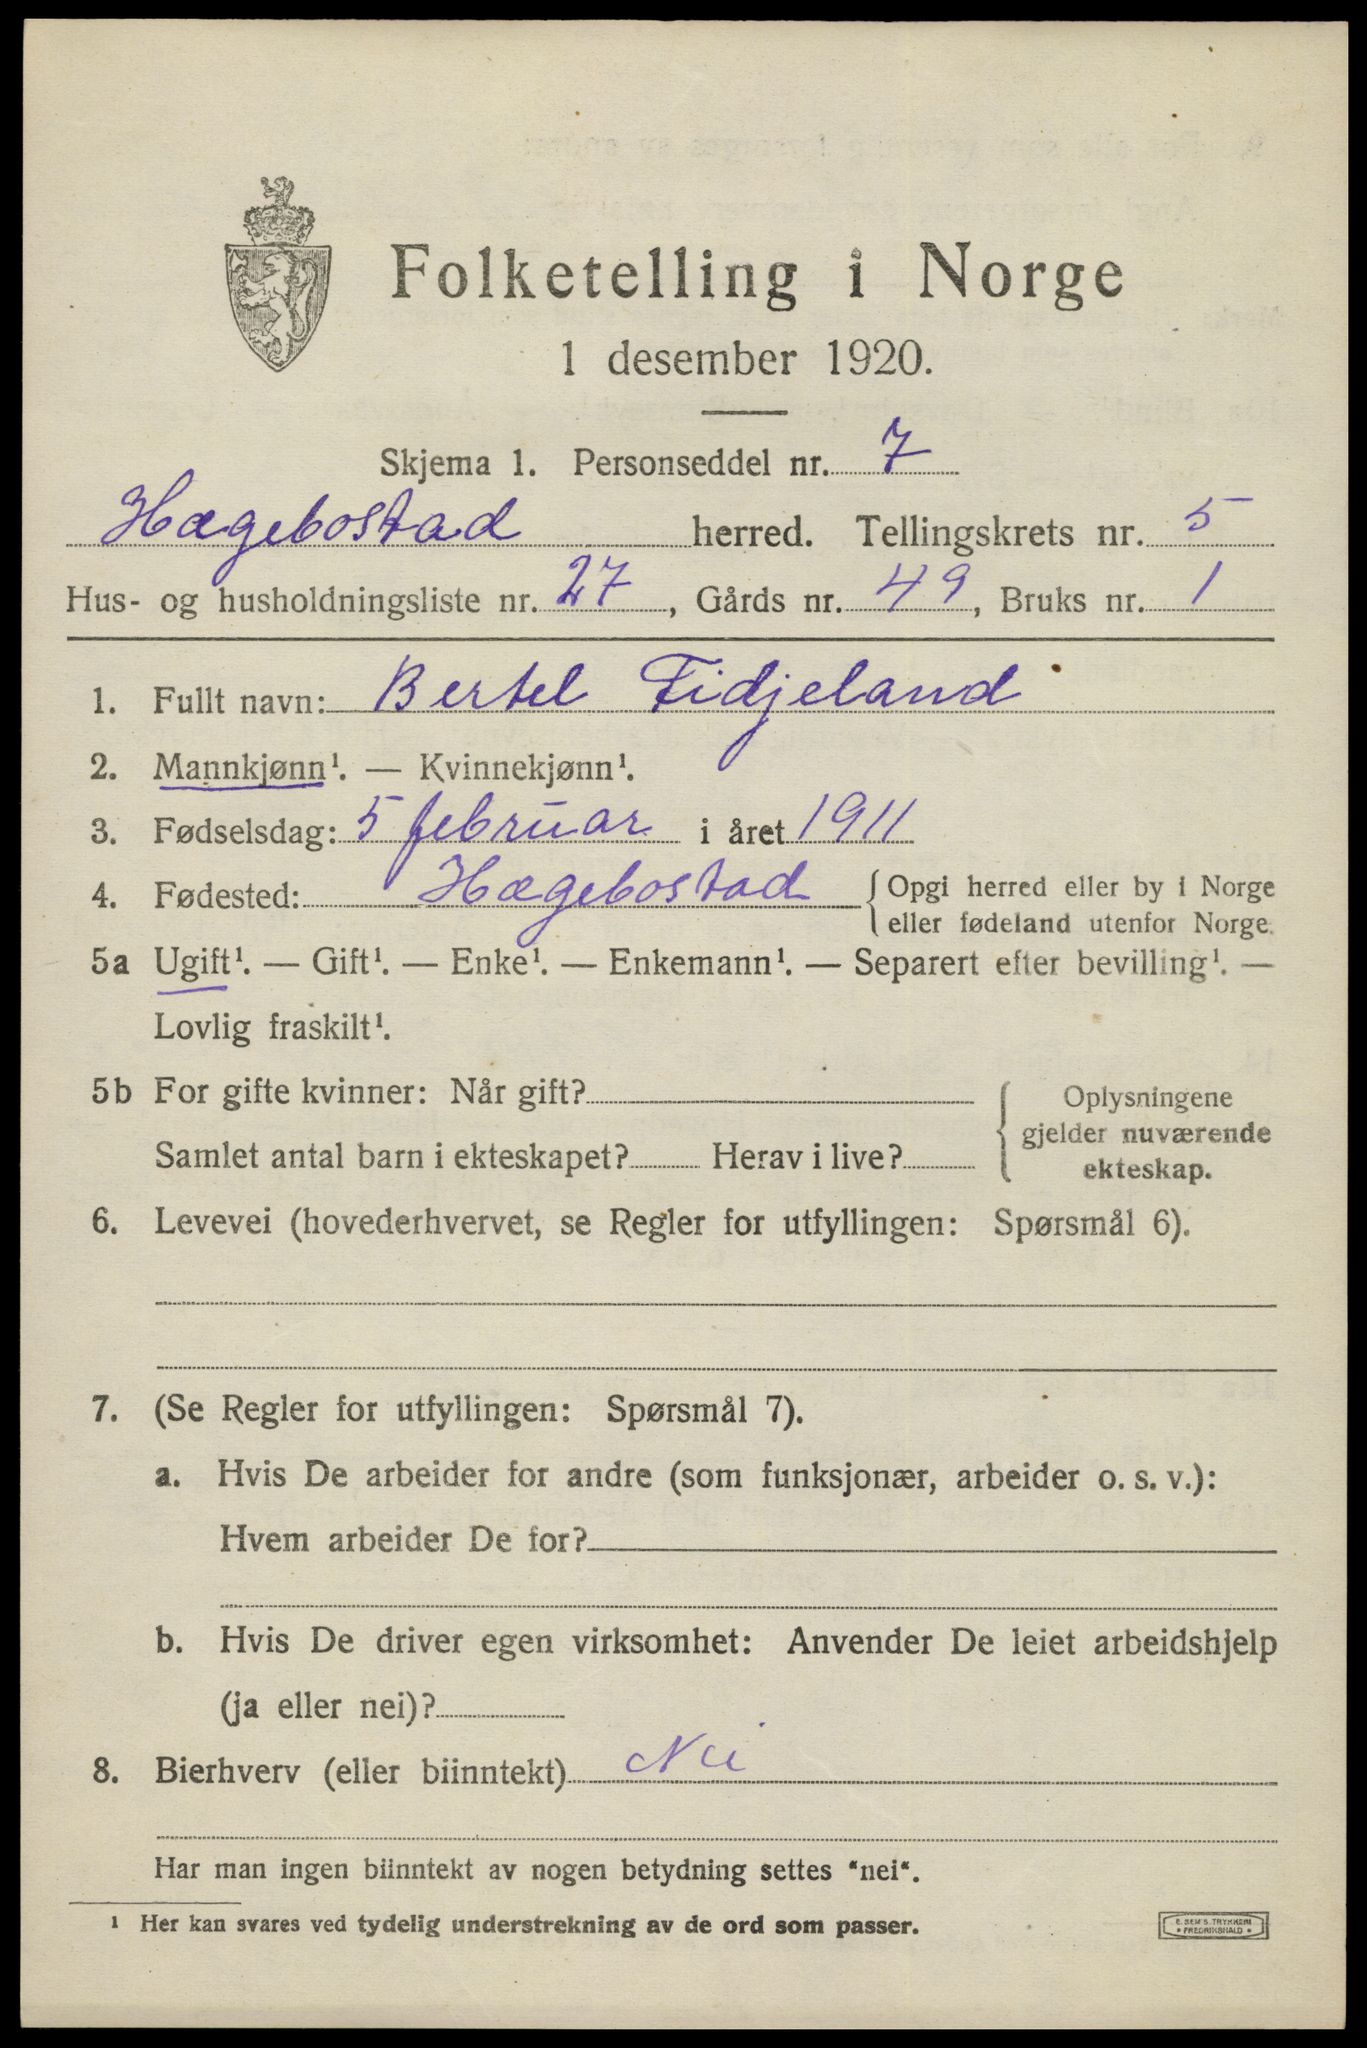 Folketelling i Norge
1 desember 1920.
Skjema 1. Personseddel nr. 7
Hægebostad herred. Tellingskrets nr. 5
Hus- og husholdningsliste nr. 27, Gårds nr. 49, Bruks nr. 1
1. Fullt navn: Bertel Fidjeland
2. Mannkjønn¹. — Kvinnekjønn¹.
3. Fødselsdag: 5 februar i året 1911
4. Fødested: Hægebostad { Opgi herred eller by i Norge
eller fødeland utenfor Norge.
5a Ugift¹. — Gift¹. — Enke¹. — Enkemann¹. — Separert efter bevilling¹. —
Lovlig fraskilt¹.
5b For gifte kvinner: Når gift? { Oplysningene
gjelder nuværende
Samlet antal barn i ekteskapet? Herav i live? ekteskap.
6. Levevei (hovederhvervet, se Regler for utfyllingen: Spørsmål 6).
7. (Se Regler for utfyllingen: Spørsmål 7).
a. Hvis De arbeider for andre (som funksjonær, arbeider o. s. v.):
Hvem arbeider De for?
b. Hvis De driver egen virksomhet: Anvender De leiet arbeidshjelp
(ja eller nei)?
8. Bierhverv (eller biinntekt) Nei
Har man ingen biinntekt av nogen betydning settes "nei".
¹ Her kan svares ved tydelig understrekning av de ord som passer.
E. SEM'S TRYKKERI
FREDRIKSHALD